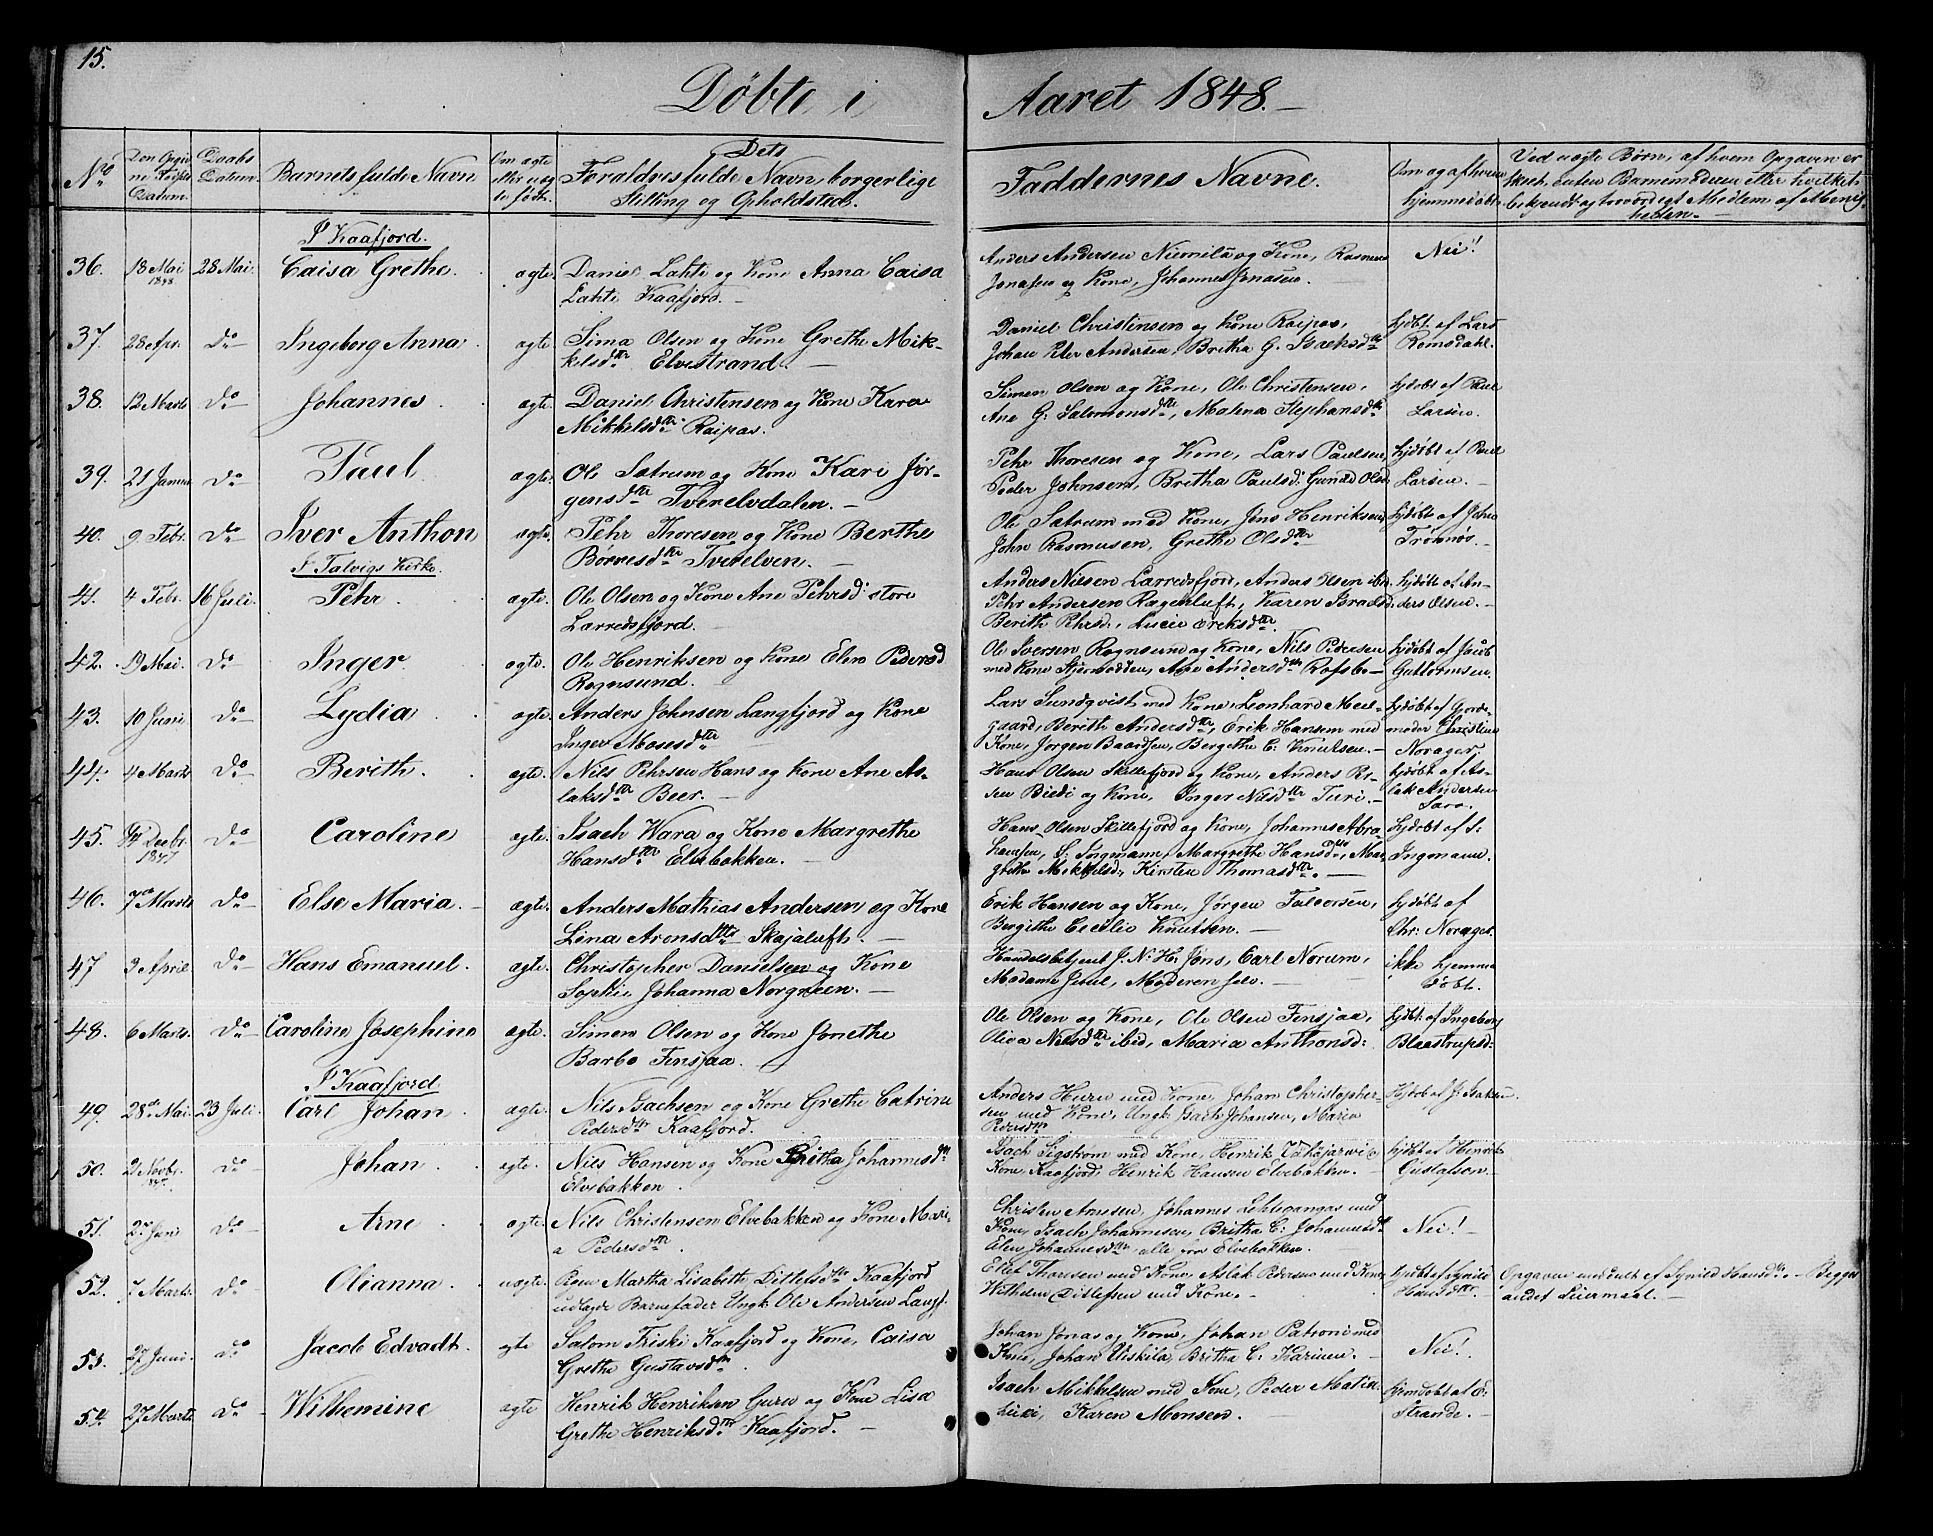 15.
Døbte i Aaret 1848.
No
Den Opgivne Fødsels Datum.
Daabs Datum.
Barnets fulde Navn
Om ægte eller uægte født.
Dets Forældres fulde Navn, borgerlige Stilling og Opholdsted.
Faddernes Navne.
Om og af hvem hjemmedøbt
Ved uægte Børn, af hvem Opgaven er skeet, enten Barnemoderen eller hvilket bekjendt og troværdigt Medlem af Menigheden.
I Kaafjord.
36. 18 Mai 1848 28 Mai. Caisa Grethe. ægte. Daniel Lahti og Kone Anna Caisa
Lahti Kaafjord.
Anders Andersen Niemilä og Kone, Rasmus
Jonasen og Kone, Johannes Jonasen.
Nei!
37. 28 Apr. Do Ingeborg Anna. ægte. Sima Olsen og Kone Grethe Mik-
kelsdtr Elvestrand.
Daniel Christensen og Kone Raipas,
Johan Peter Andersen, Britha G. Isaksdtr
hjdøbt af Lars
Romsdahl.
38. 12 Marts Do Johannes. ægte. Daniel Christensen og Kone Karen
Mikkelsdtr Raipas.
Simen Olsen og Kone, Ole Christensen,
Ane G. Salomonsdtr, Malena Stephansdtr
hjdøbt af Paul
Larsen.
39. 21 Januar Do Paul ægte. Ole Sætrum og Kone Kari Jør-
gensdtr Tverelvdalen.
Pehr Thoresen og Kone, Lars Paulsen,
Peder Johnsen, Britha Paulsd. Guned Olsd
hjdøbt af Paul
Larsen.
40. 9 Febr. Do Iver Anthon ægte. Pehr Thoresen og Kone Berthe
Børresdtr Tverelven.
Ole Sætrum med Kone, Jens Henriksen,
John Rasmusen, Grethe Olsdtr
hjdøbt af John
Tromnøs.
I Talvigs Kirke.
41. 4 Febr. 16 Juli. Pehr. ægte. Ole Olsen og Kone Ane Pehrsd. store
Larredsfjord.
Anders Nilsen Larredsfjord, Anders Olsen ibd.
Pehr Andersen Røgenluft, Karen
Berith Pehrsd., Lucie Ereksdtr.
hjdøbt af An-
ders Olsen.
42. 19 Mai. Do Inger ægte. Ole Henriksen og Kone Elen Pedersd
Rognsund.
Ole Iversen Rognsund og Kone, Nils Pedersen
med Kone Stjernodden, Ane Andersdtr Rafsbo
hjdøbt af Jacob
Guttormsen.
43. 10 Juni Do Lydia ægte. Anders Johnsen Langfjord og Kone
Inger Mosesdtr
Lars Sundqvist med Kone, Leonhard Meel-
gaard, Berith Andersdtr, Erik Hansen med
Kone, Jørgen Baardsen, Bergethe C. Knutsen.
hjdøbt af Jorde-
moder Christine
Norager.
44. 4 Marts Do Berith. ægte. Nils Pehrsen Hans og Kone Ane As-
laksdtr Beer.
Hans Olsen Skillefjord og Kone, Anders Pe-
sen Biedi og Kone, Inger Nilsdtr Turi.
hjdøbt af As-
lak Andersen
Sara.
45. 14 Decbr. 1847 Do Caroline ægte. Isach Wara og Kone Margrethe
Hansdtr Elvebakken.
Hans Olsen Skillefjord og Kone, Johannes Abra-
hamsen, S. Ingmann, Margrethe Hansdtr, Mar-
grethe Mikkelsd, Kirsten Thomasdtr.
hjdøbt af S:
Ingmann.
46. 7de Marts Do Else Maria. ægte. Anders Mathias Andersen og Kone
Lena Aronsdtr Skajaluft.
Erik Hansen og Kone, Jørgen Falcorsen,
Bergithe Cecilie Knutsen.
hjdøbt af
Chr: Norager.
47 3 April. Do Hans Emanuel. ægte. Christopher Danielsen og Kone
Sophie Johanna Norgreen.
Handelsbetjent J. N. H. Jøns, Carl Norum,
Madame Jesul, Moderen selv.
ikke hjemme
døbt.
48. 6 Marts. Do Caroline Josephine ægte. Simon Olsen og Kone Jonethe
Barbo Finsjaa.
Ole Olsen og Kone, Ole Olsen Finsjaa,
Oliva Nilsdtr ibid, Maria Anthonsd:
hjdøbt af Ingeborg
Blaastrupsd:
I Kaafjord.
49. 28de Mai. 23 Juli. Carl Johan. ægte. Nils Isachsen og Kone Grethe Catrina
Pedersdtr Kaafjord.
Anders Huru med Kone, Johan Christopher-
sen med Kone, Ungk. Isach Johansen, Maria
Pedersdtr
Hjdøb af J: Isaksen.
50. 2 Novbr. 1847. do Johan. ægte. Nils Hansen og Kone Britha Johannesdtr
Elvebakken.
Isach Sigstrøm med Kone, Henrik med
Kone Kaafjord, Henrik Hansen Elvebakken.
hjdøbt af Henrik
Gustafsen.
51. 2den Juni do Arne ægte. Nils Christensen Elvebakken og Kone Mari-
a Pedersdtr.
Christen Arnesen, Johannes Lehtigangas med
Kone, Isach Johannesen, Britha C: Johannesdtr
Elen Johannesdtr, alle fra Elvebakken.
Nei!
52. 7 Marts. do Olianna. uægte. Pigen Martha Lisabeth Ditlefsdtr Kaafjord
udlagde Barnefader Ungk. Ole Andersen Langf.
Elet Thoresen med Kone, Aslak Pedersen med Kone,
Wilhelm Ditlefsen med Kone.
hjdøbt af Synild
Hansdtr.
Opgaven meddelt af Synild Hansdtr. Begges
andet Leiermaal.
53. 27 Juni. do Jacob Edvadt. ægte Salom Friski Kaafjord og Kone, Caisa
Grethe Gustavsdtr.
Johan Jonas og Kone, Johan Patroni med
Kone, Johan Uiskila, Britha C: Karinen.
Nei!
54. 27 Marts do Wilhemine ægte Henrik Henriksen Guru og Kone Lisa
Grethe Henriksdtr Kaafjord.
Isach Mikkelsen med Kone, Peder Matia
Leiki, Karen Monsen.
hjemdøbt af E:
Strande.